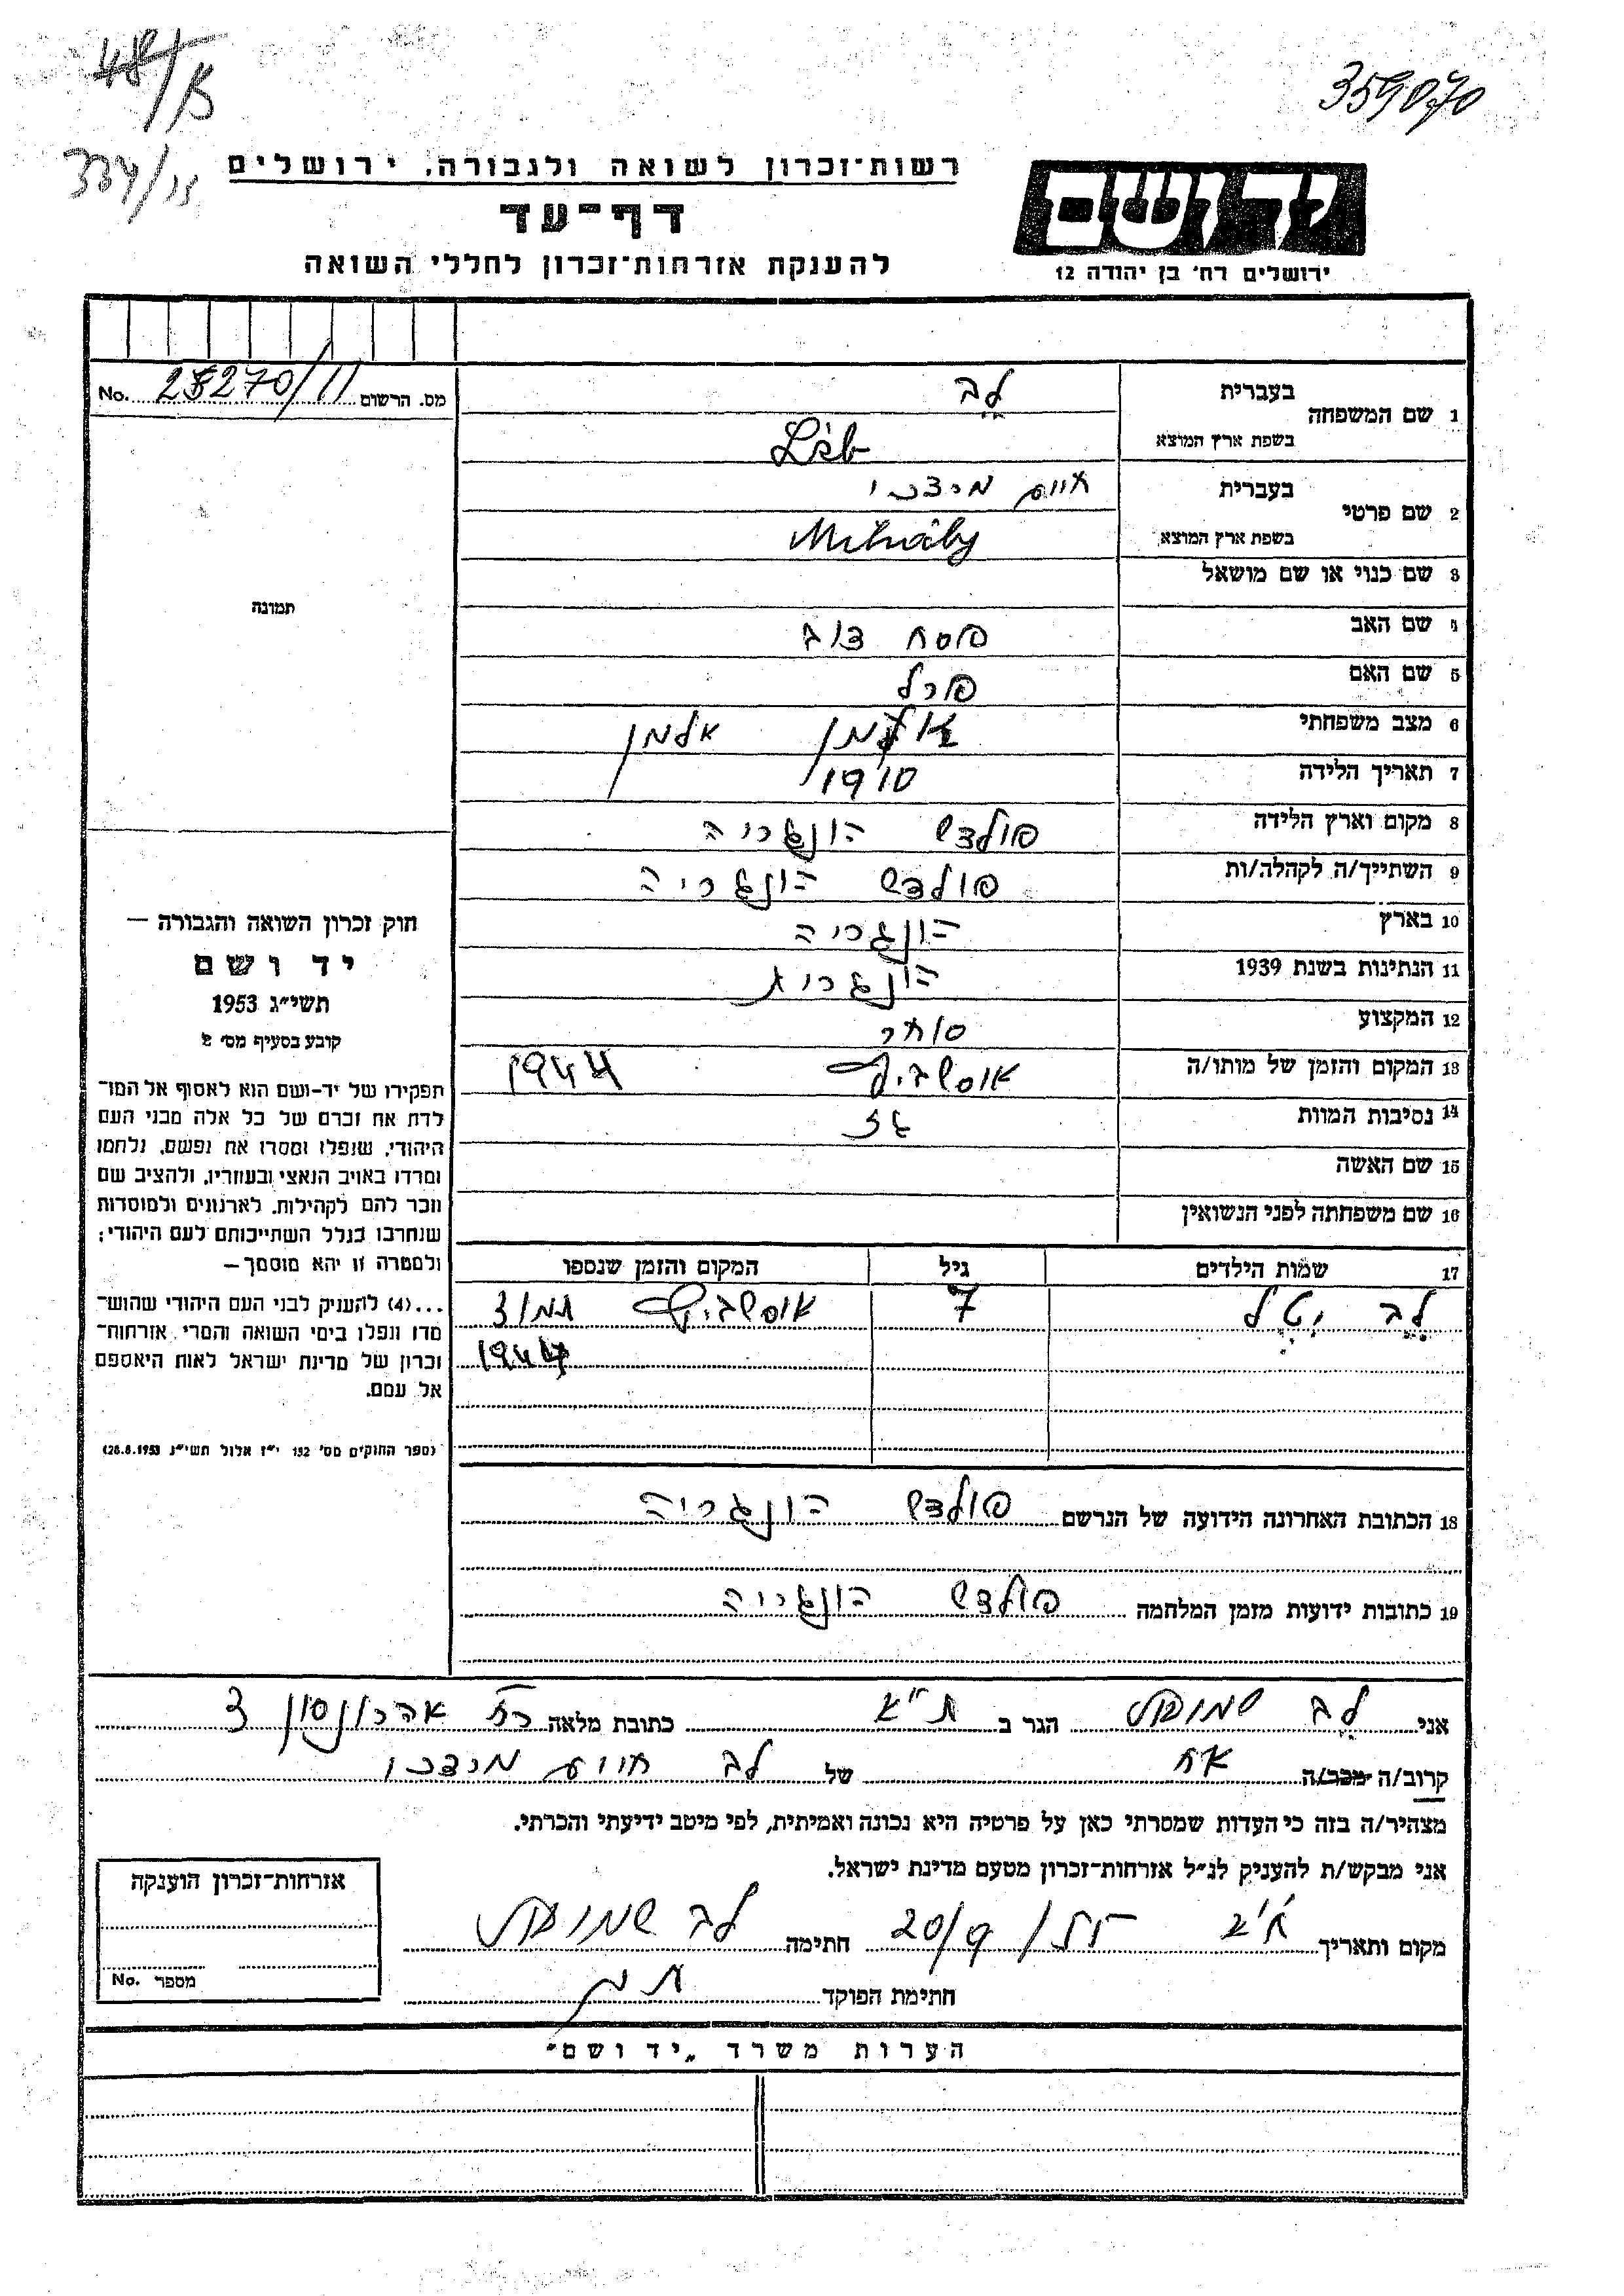 48/א
359070
334/15
רשות־זכרון לשואה ולגבורה, ירושלים
דף־עד
להענקת אזרחות־זכרון לחללי השואה
יד ושם
ירושלים רח' בן יהודה 12
מס. הרשום 28270/11 No.
1 שם המשפחה בעברית לב
בשפת ארץ המוצא Léb
2 שם פרטי בעברית חיים מרדכי
בשפת ארץ המוצא Mihály
3 שם כנוי או שם מושאל
תמונה
4 שם האב פסח צבי
5 שם האם פרל
6 מצב משפחתי אלמן אלמן
7 תאריך הלידה 1910
8 מקום וארץ הלידה פולדש הונגריה
9 השתייך/ה לקהלה/ות פולדש הונגריה
10 בארץ הונגריה
11 הנתינות בשנת 1939 הונגרית
12 המקצוע סוחר
13 המקום והזמן של מותו/ה אושביץ 1944
14 נסיבות המוות גז
15 שם האשה
16 שם משפחתה לפני הנשואין
17 שמות הילדים גיל המקום והזמן שנספו
לב יטל 7 אושביץ תמוז
1944
חוק זכרון השואה והגבורה —
יד ושם
תשי"ג 1953
קובע בסעיף מס' 2
תפקידו של יד-ושם הוא לאסוף אל המו־
לדת את זכרם של כל אלה מבני העם
היהודי, שנפלו ומסרו את נפשם, נלחמו
ומרדו באויב הנאצי ובעוזריו, ולהציב שם
וזכר להם לקהילות, לארגונים ולמוסדות
שנחרבו בגלל השתייכותם לעם היהודי;
ולמטרה זו יהא מוסמך —
...(4) להעניק לבני העם היהודי שהוש־
מדו ונפלו בימי השואה והמרי אזרחות־
זכרון של מדינת ישראל לאות היאספם
אל עמם.
(ספר החוקים מס' 132 י"ז אלול תשי"ג 28.8.1953)
18 הכתובת האחרונה הידועה של הנרשם פולדש הונגריה
19 כתובות ידועות מזמן המלחמה פולדש הונגריה
אני לב שמואל הגר ב ת"א כתובת מלאה רח אהרונסון 3
קרוב/ה מכר/ה אח של לב חיים מרדכי
מצהיר/ה בזה כי העדות שמסרתי כאן על פרטיה היא נכונה ואמיתית, לפי מיטב ידיעתי והכרתי.
אני מבקש/ת להעניק לנ"ל אזרחות-זכרון מטעם מדינת ישראל.
מקום ותאריך 20/9 חתימה לב שמואל
חתימת הפוקד
אזרחות־זכרון הוענקה
מספר No.
הערות משרד „יד ושם"